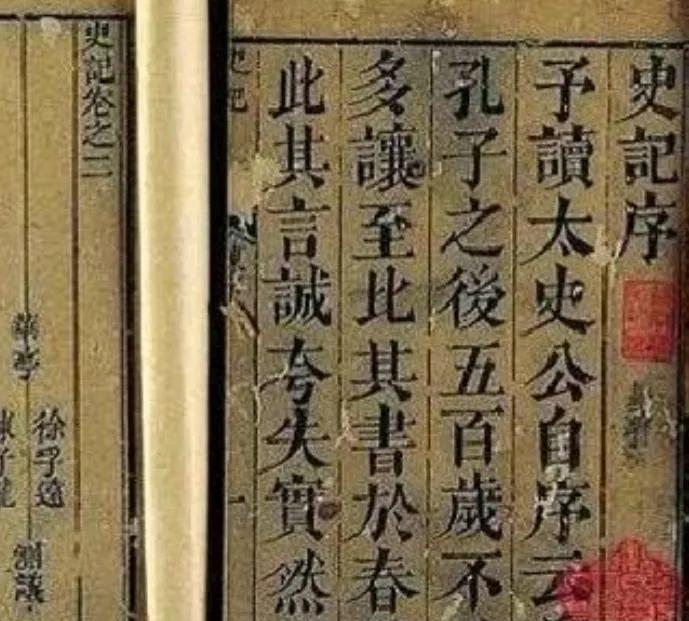 史記序
予讀太史公自序云
孔子之後五百歲不
多讓至比其書於春
此其言誠夸失實然
史記
一
史記卷之二
華亭
徐孚遠
測議
陳子龍